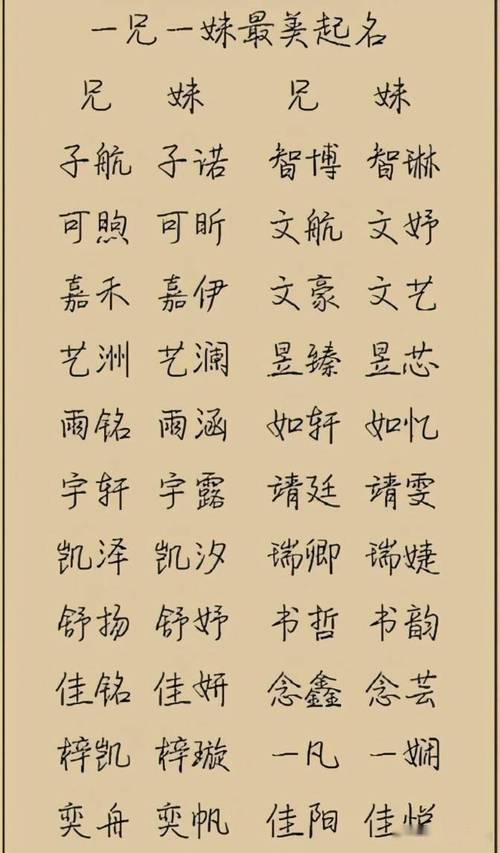 一兄一妹最美起名
兄 妹 兄 妹
子航 子诺 智博 智琳
可煦 可昕 文航 文妤
嘉禾 嘉伊 文豪 文艺
艺洲 艺澜 昱臻 昱芯
雨铭 雨涵 如轩 如忆
宇轩 宇露 靖廷 靖雯
凯泽 凯汐 瑞卿 瑞婕
舒扬 舒妤 书哲 书韵
佳铭 佳妍 念鑫 念芸
梓凯 梓璇 一凡 一娴
奕舟 奕帆 佳阳 佳悦